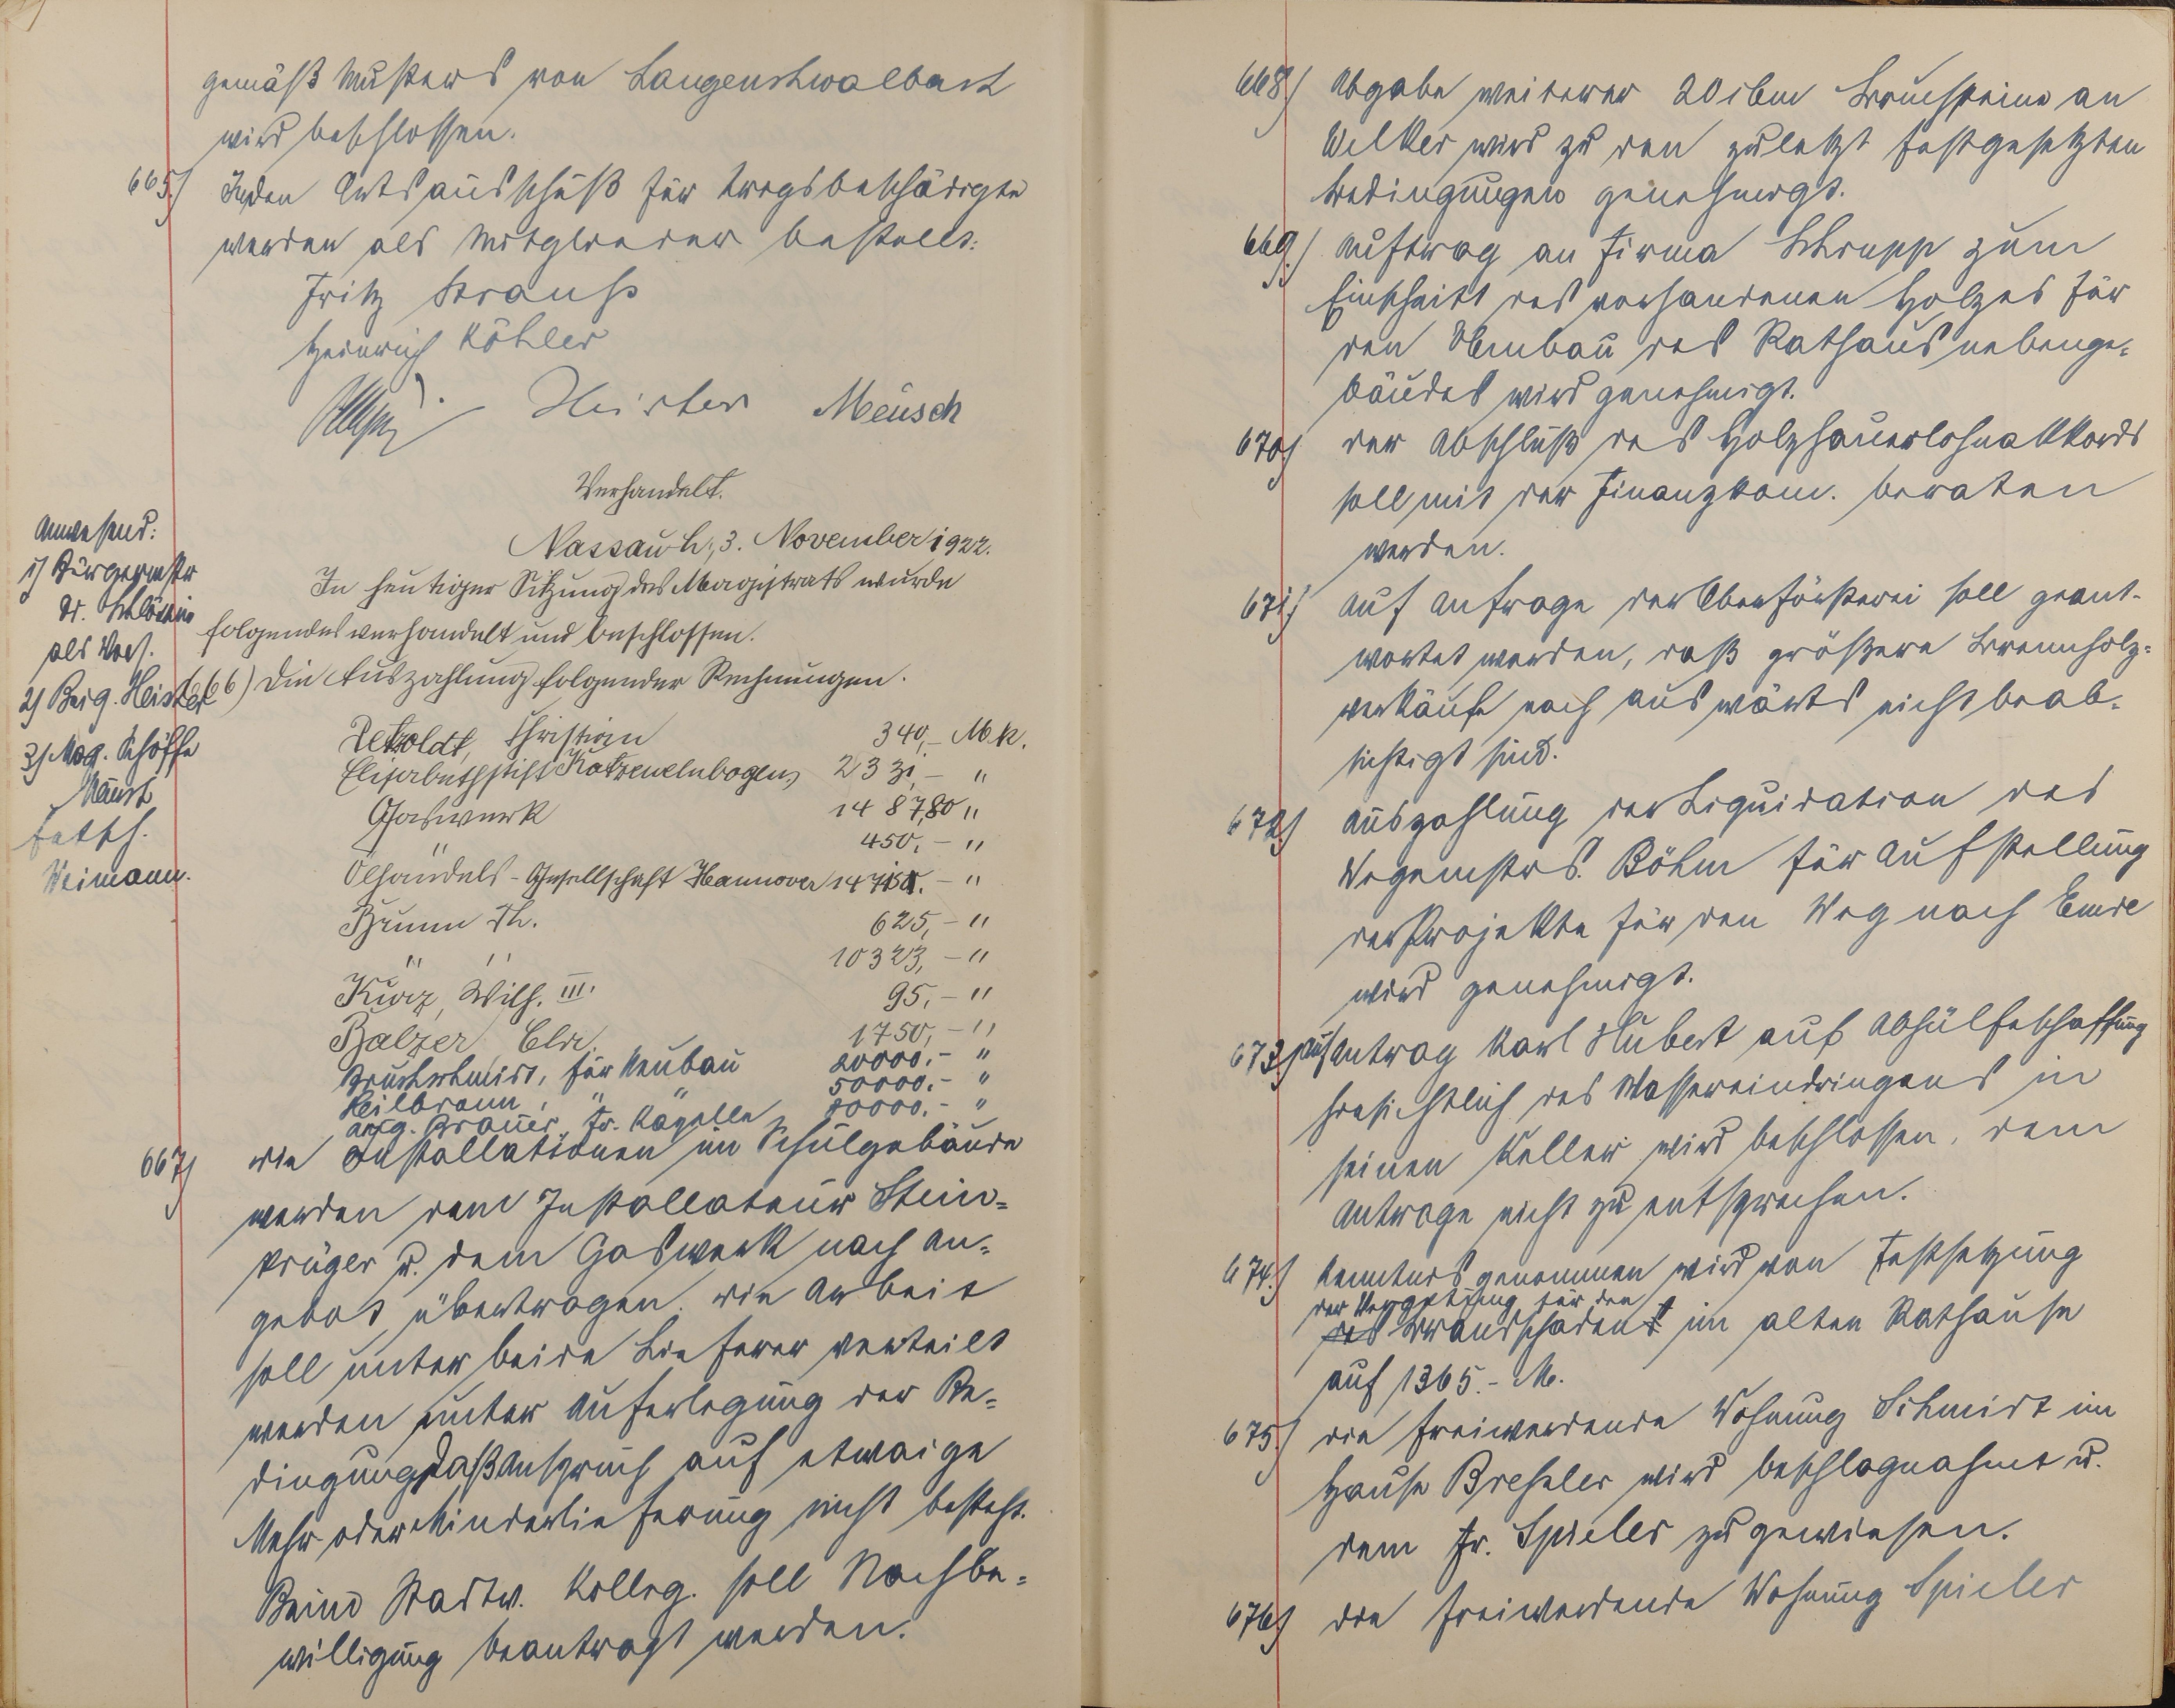 gemäß Musters von Langenschwalbach
wird beschlossen.
665.) In den Ortsausschuß für Kriegsbeschädigte
werden als Mitglieder bestellt:
Fritz Strauß
Heinrich Köhler
Heister Meusch
Verhandelt.
Nassau L., 3. November 1922.
In heutiger Sitzung des Magistrats wurde
folgendes verhandelt und beschlossen.
Anwesend:
1) Bürgermstr
Dr.
als Vors.
2) Beig. Heister
3) Mag. Schöffe
Meusch
Weimann.
666) Die Auszahlung folgender Rechnungen.
Petzoldt, Christian 340,- Mk.
Elisabethstift Katzenelnbogen 233,- "
Gaswerk 1487,80 "
" 450,- "
Ölhandels-Gesellschaft Hannover - "
Brunn Th. 625,- "
" " 10323,- "
Kurz, Wilh. III. 95,- "
Balzer, Chr. 1750,- "
für Neubau 20000.- "
Heilbronn, " " 50000.- "
" 20000.- "
667) Die Installationen im Schulgebäude
werden dem Installateur Stein-
krüger u. dem Gaswerk nach An-
gebot übertragen. Die Arbeit
soll unter beide Lieferer verteilt
werden unter Auferlegung der Be-
dingung, daß Anspruch auf etwaige
Mehr oder Minderlieferung nicht besteht.
Beim Stadtv. Kolleg. soll Nachbe-
willigung beantragt werden.
668.) Abgabe weiterer 20 cbm Bruchsteine an
Welker wird zu den zuletzt festgesetzten
Bedingungen genehmigt.
669.) Auftrag an Firma Schrupp zum
Einschnitt des vorhandenen Holzes für
den Umbau des Rathausnebenge-
bäudes wird genehmigt.
670.) Der Abschluß des Holzhauerlohnakkords
soll mit der Finanzkom. beraten
werden.
671.) Auf Anfrage der Oberförsterei soll geant-
wortet werden, daß größere Brennholz-
verkäufe nach auswärts nicht beab-
sichtigt sind.
672.) Auszahlung der Liquidation des
Wegemstrs. Böhm für Aufstellung
der Projekte für den Weg nach
wird genehmigt.
673.) Auf Antrag Karl Hubert auf Abhülfeschaffung
hinsichtlich des Wassereindringens in
seinen Keller wird beschlossen, dem
Antrage nicht zu entsprechen.
674.) Kenntnis genommen wird von Festsetzung
der Vergütung für den
des Brandschaden im alten Rathause
auf 1365.- M.
675.) Die freiwerdende Wohnung Schmidt im
Hause Bressler wird beschlagnahmt u.
dem Fr. Spieler zugewiesen.
676.) Die freiwerdende Wohnung Spieler